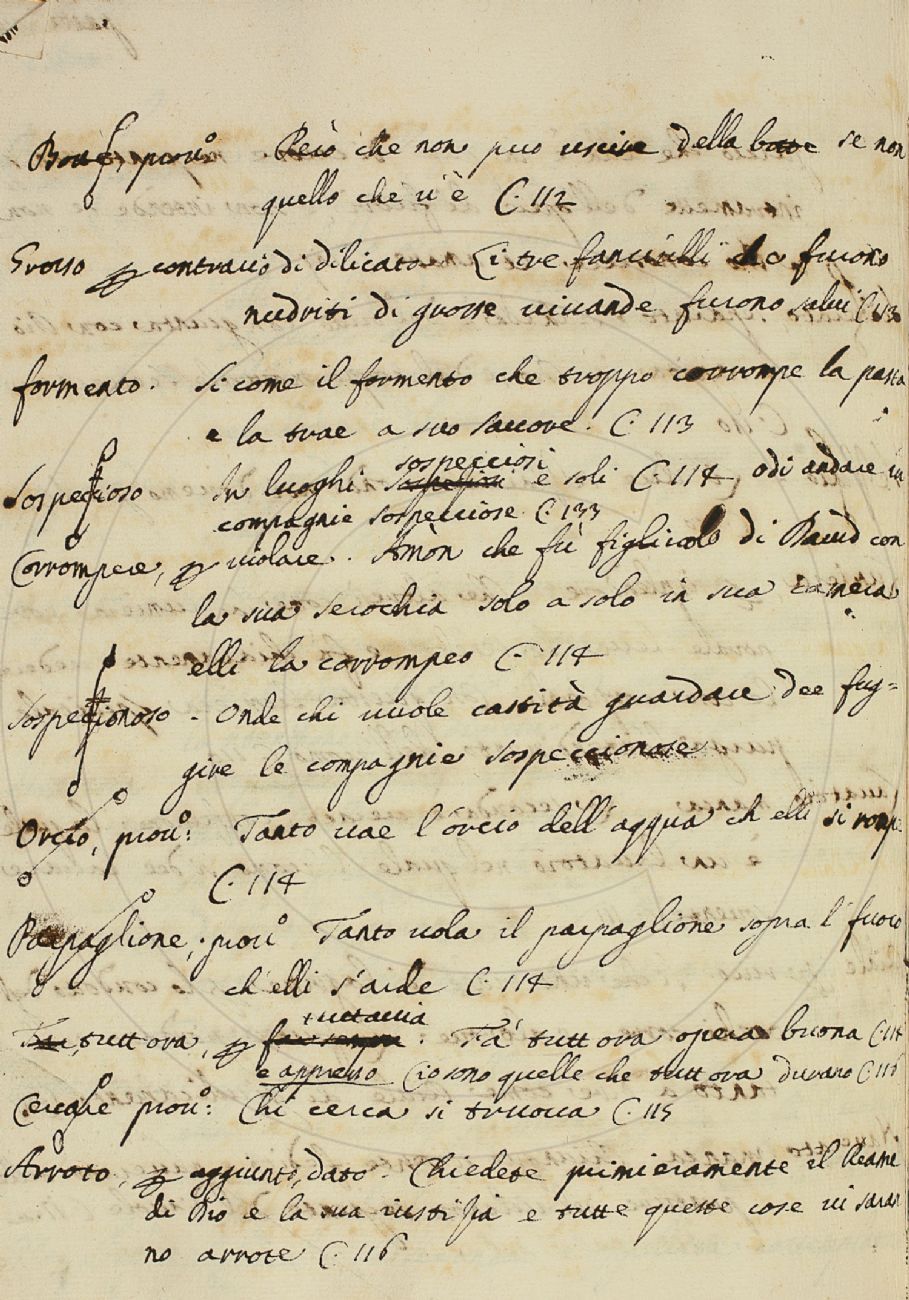 Botte, prou.º Però che non puo uscire della botte se non
quello che u'è C. 112
Grosso p contrario di dilicato Li tre fanciulli che furono
nudriti di grosse uiuande furono salui C. 113
formento. Si come il formento che troppo corrompe la pasta
e la trae a suo sauore. C. 113
sospecciosi
Sospeccioso In luoghi e soli C. 114, o di andare in
compagnie sospecciose C. 133
Corrompere, p uiolare. Amòn che fù figliuolo di Dauid con
la sua serochia solo a solo in sua camera
elli la corrompeo C. 114
Sospeccionoso - Onde chi uuole castità guardare dee fug=
gire le compagnie sospeccionose
Orcio, prou.º: Tanto uae l'orcio dell'acqua ch elli si romp.
C. 114
Parpaglione, prou.º Tanto uola il parpaglione sopra l'fuoco
ch'elli s'arde C. 114
tuttauia
tutt ora, p . Fa' tutt ora opera buona C. 114
e appresso Cio sono quelle che tutt ora durano C. 116
Cercare prou.º: Chi cerca si truoua C. 115
Arroto, p aggiunto, dato. Chiedete primieramente il Reame
di Dio e la sua iustizia e tutte queste cose ui saran
no arrote C. 116